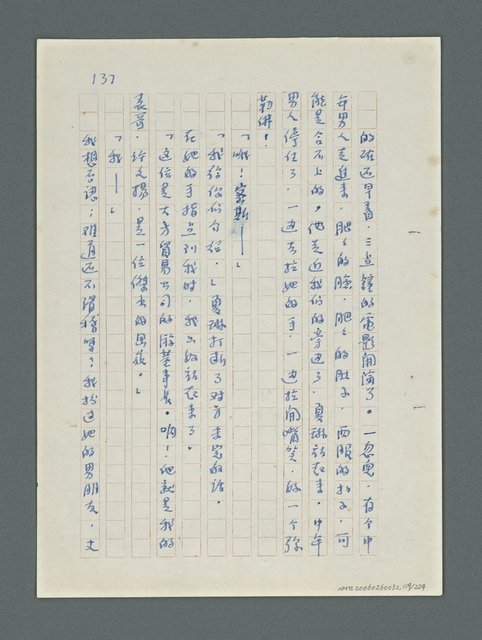 137
的確還早着,三点鐘的電影開演了。一忽兒,有个中
年男人走進來,肥肥的臉,肥肥的肚子,西服的扣子,可
能是合不上的,他走近我们的旁边了,夏琳站起來,中年
男人停住了,一边去拉她的手,一边拉開嘴笑,好一个弥
勒佛!
「哦!密斯——」
「我给你们介绍,」夏琳打断了对方未完的話。
在她的手指点到我时,我只好站起來了。
「這位是大方貿易公司的游董事長,喲!他就是我的
表哥,許文揚,是一位傑出的畫家。」
「我——」
我想否認;难道还不滑稽嗎?我扮过她的男朋友,丈
NMTL20060260032,119/224